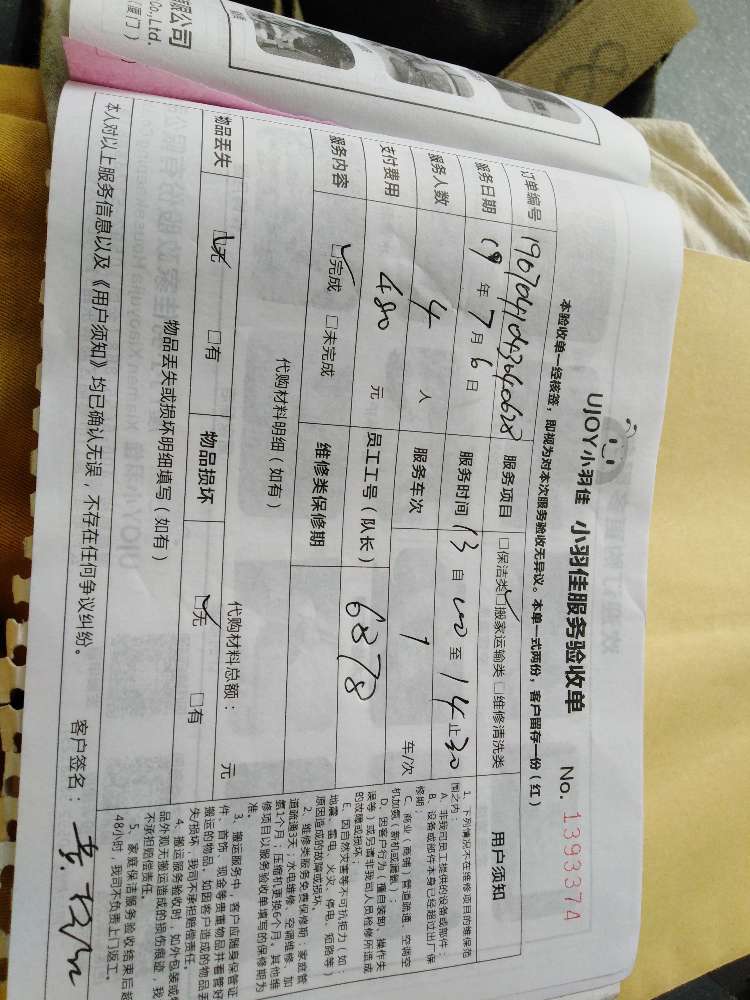 限公司
Co., Ltd.
(厦门)
UJOY小羽佳 小羽佳服务验收单 No. 1393374
本验收单一经核签，即视为对本次服务验收无异议。本单一式两份，客户留存一份（红）
订单编号 服务项目 □保洁类□搬家运输类□维修清洗类
服务日期 19 年 7 月 6 日 服务时间 13 自 00 至 14 止 30
服务人数 4 人 服务车次 1 车/次
支付费用 480 元 员工工号（队长） 6878
服务内容 □完成 □未完成 维修类保修期
代购材料明细（如有） 代购材料总额： 元
物品丢失 □无 □有 物品损坏 □无 □有
物品丢失或损坏明细填写（如有）
本人对以上服务信息以及《用户须知》均已确认无误，不存在任何争议纠纷。 客户签名：
用户须知
1. 下列情况不在维修项目的维保范
围之内：
A. 非我司员工提供的设备或部件；
B. 设备或部件本身已经超过出厂保
修期；
C. 商业（商铺）管道疏通、空调空
机加氨（新机或漏氨）；
D. 因客户行为（擅自装卸、操作失
误等）或另请非我司人员检修所造成
的故障或损坏；
E. 因自然灾害等不可抗拒力（如：
地震、雷电、火灾、停电、短路等）
原因造成的故障或损坏。
2. 维修类服务免费保修期：家庭管
道疏通3天；水电维修、空调维修、加
氨1个月；压缩机更换6个月，其他维
修项目以服务验收单填写的保修期为
准。
3. 搬运服务中，客户应随身保管证
件、首饰、现金等贵重物品并看管好
搬运的物品，如因客户造成的物品丢
失/损坏，我司不承担赔偿责任。
4. 搬运服务验收时，如外包装或物
品外观无搬运造成的损伤痕迹，我
不承担赔偿责任。
5. 家庭保洁服务验收结束后超
48小时，我司不负责上门返工。